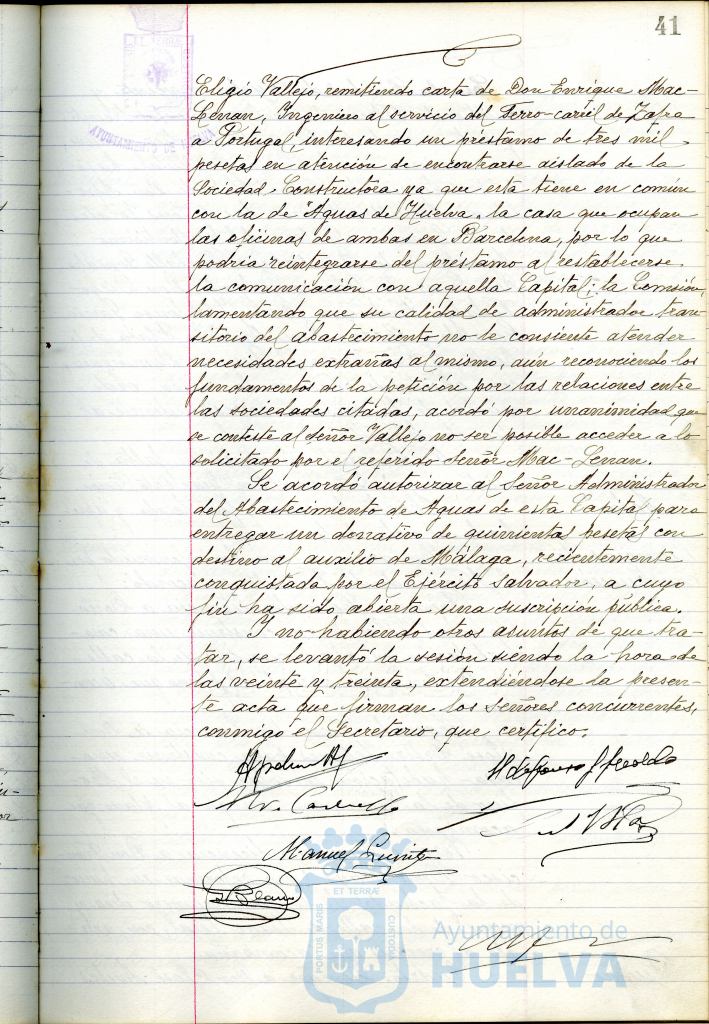 41
Eligio Vallejo, remitiendo carta de Don Enrique Mac-
Lenan, Ingeniero al servicio del Ferro-carril de Zafra
a Portugal, interesando un préstamo de tres mil
pesetas en atención de encontrarse aislado de la
Sociedad Constructora ya que esta tiene en común
con la de Aguas de Huelva, la casa que ocupan
las oficinas de ambas en Barcelona, por lo que
podría reintegrarse del préstamo al restablecerse
la comunicación con aquella Capital; la Comisión,
lamentando que su calidad de administrador tran-
sitorio del abastecimiento no le consiente atender
necesidades extrañas al mismo, aún reconociendo los
fundamentos de la petición por las relaciones entre
las sociedades citadas, acordó por unanimidad que
se conteste al señor Vallejo no ser posible acceder a lo
solicitado por el referido Señor Mac-Lenan.
Se acordó autorizar al Señor Administrador
del Abastecimiento de Aguas de esta Capital para
entregar un donativo de quinientas pesetas con
destino al auxilio de Málaga, recientemente
conquistada por el Ejército Salvador, a cuyo
fin ha sido abierta una suscripción pública.
Y no habiendo otros asuntos de que tra-
tar, se levantó la sesión siendo la hora de
las veinte y treinta, extendiéndose la presen-
te acta que firman los señores concurrentes,
conmigo el Secretario, que certifico.
Manuel
AYUNTAMIENTO DE HUELVA
PORTUS MARIS ET TERRÆ CUSTODIA
Ayuntamiento de
HUELVA